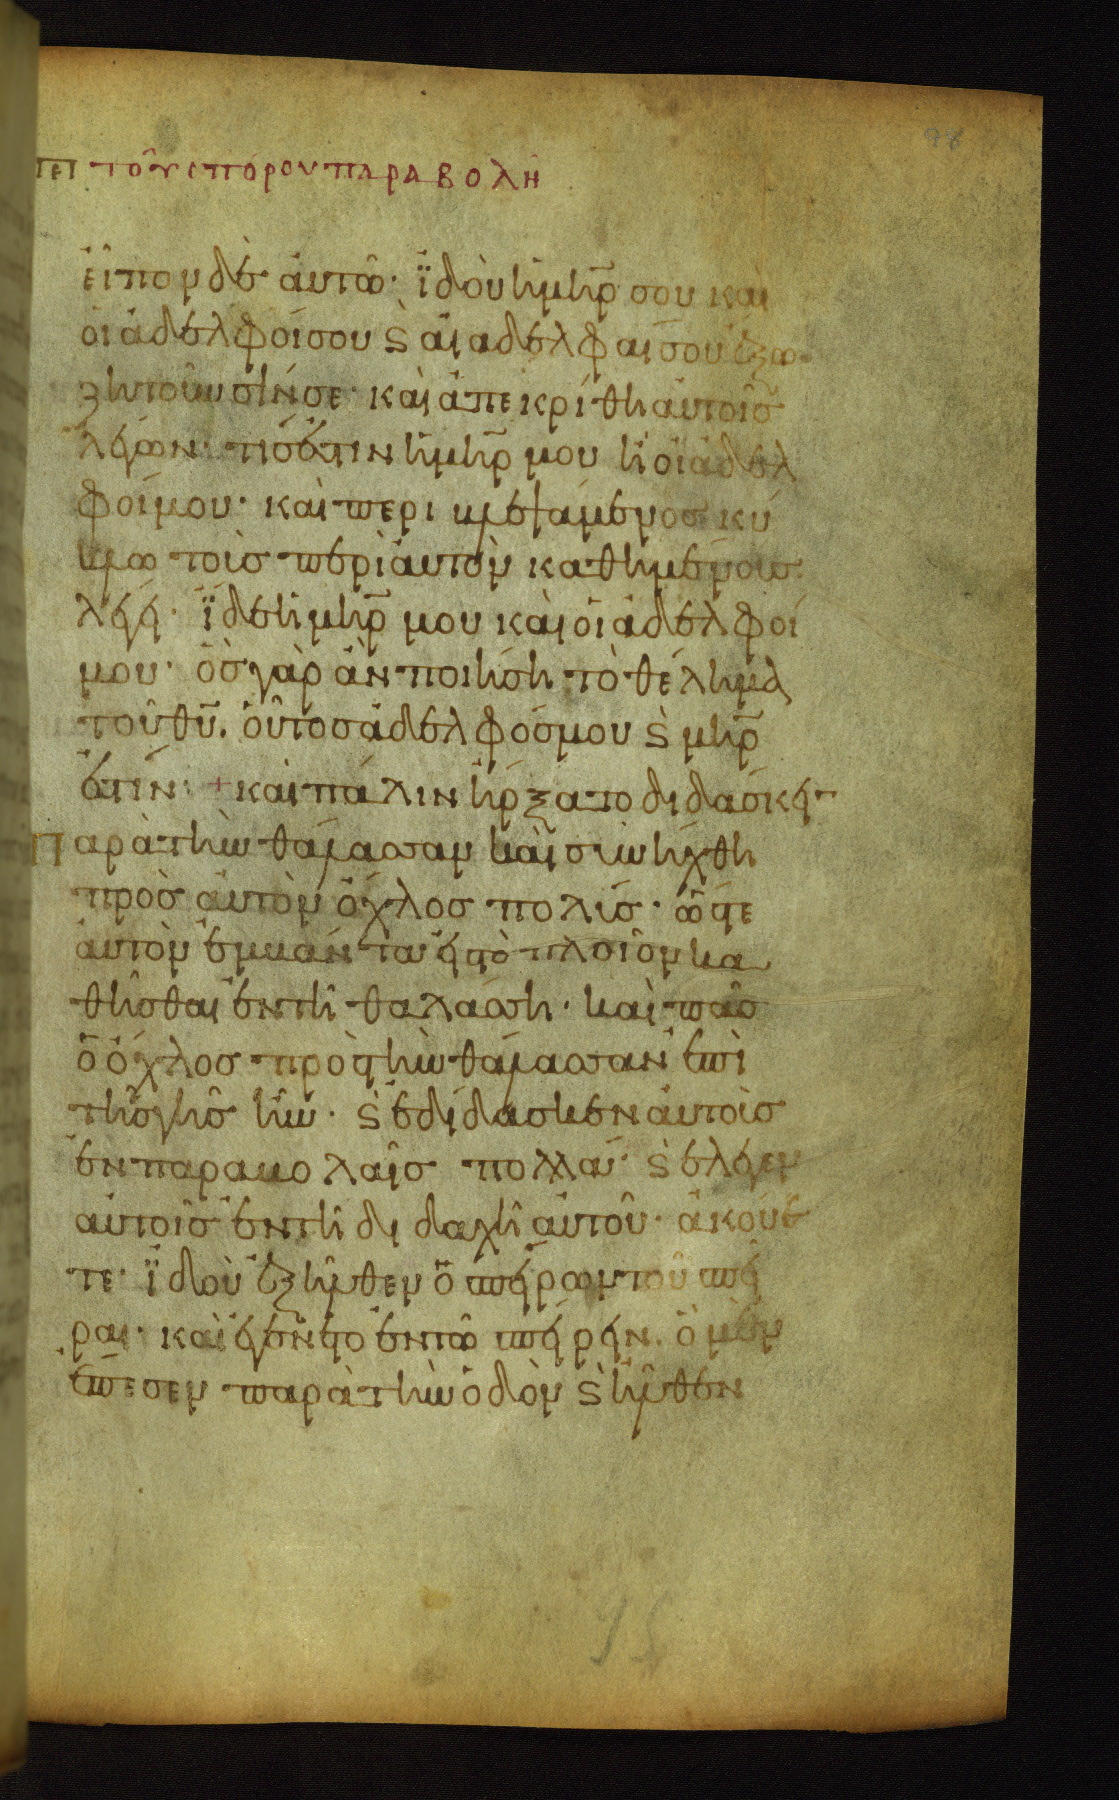 98
περι του σπορου παραβολη
εἶπον δὲ ἀυτῶ· ἰδοὺ ἡ μη̅ρ σου καὶ
οἱ ἀδελφοί σου ϛ αἱ ἀδελφαι σου ἔξω
ζητοῦν σίν σε· καὶ ἀπεκρίθη ἀυτοῖς
λέγων· τίς ἐστιν ἡ μη̅ρ μου ἢ οἱ ἀδελ
φοί μου· καὶ περιβλεψάμενος κύ
κλω τοὺς περὶ ἀυτὸν καθημένους
λέγει· ἴδε ἡ μη̅ρ μου καὶ οἱ ἀδελφοί
μου· ὃς γὰρ ἂν ποιήση τὸ θέλημα
τοῦ θυ̅. οὗτος ἀδελφός μου ϛ μη̅ρ
ἐστίν· + καὶ πάλιν ἤρξατο διδάσκειν
Παρὰ τὴν θάλασσαν καὶ συνήχθη
πρὸς ἀυτὸν ὄχλος πολύς· ὥστε
ἀυτὸν ἐμβάντα εἰς τὸ πλοῖον κα
θῆσθαι ἐν τῆ θαλάσση· καὶ πᾶς
ὁ ὄχλος πρὸς τὴν θάλασσαν ἐπὶ
τῆς γῆς ἦν· ϛ ἐδίδασκεν ἀυτοὺς
ἐν παραβολαῖς πολλά· ϛ ἔλεγεν
ἀυτοῖς ἐν τῆ διδαχῆ ἀυτοῦ· ἀκούε
τε· ἰδοὺ ἐξῆλθεν ὁ σπείρων τοῦ σπεῖ
ραι· καὶ ἐγένετο ἐν τῶ σπείρειν. ὃ μὲν
ἔπεσεν παρὰ τὴν ὁδὸν ϛ ἦλθεν